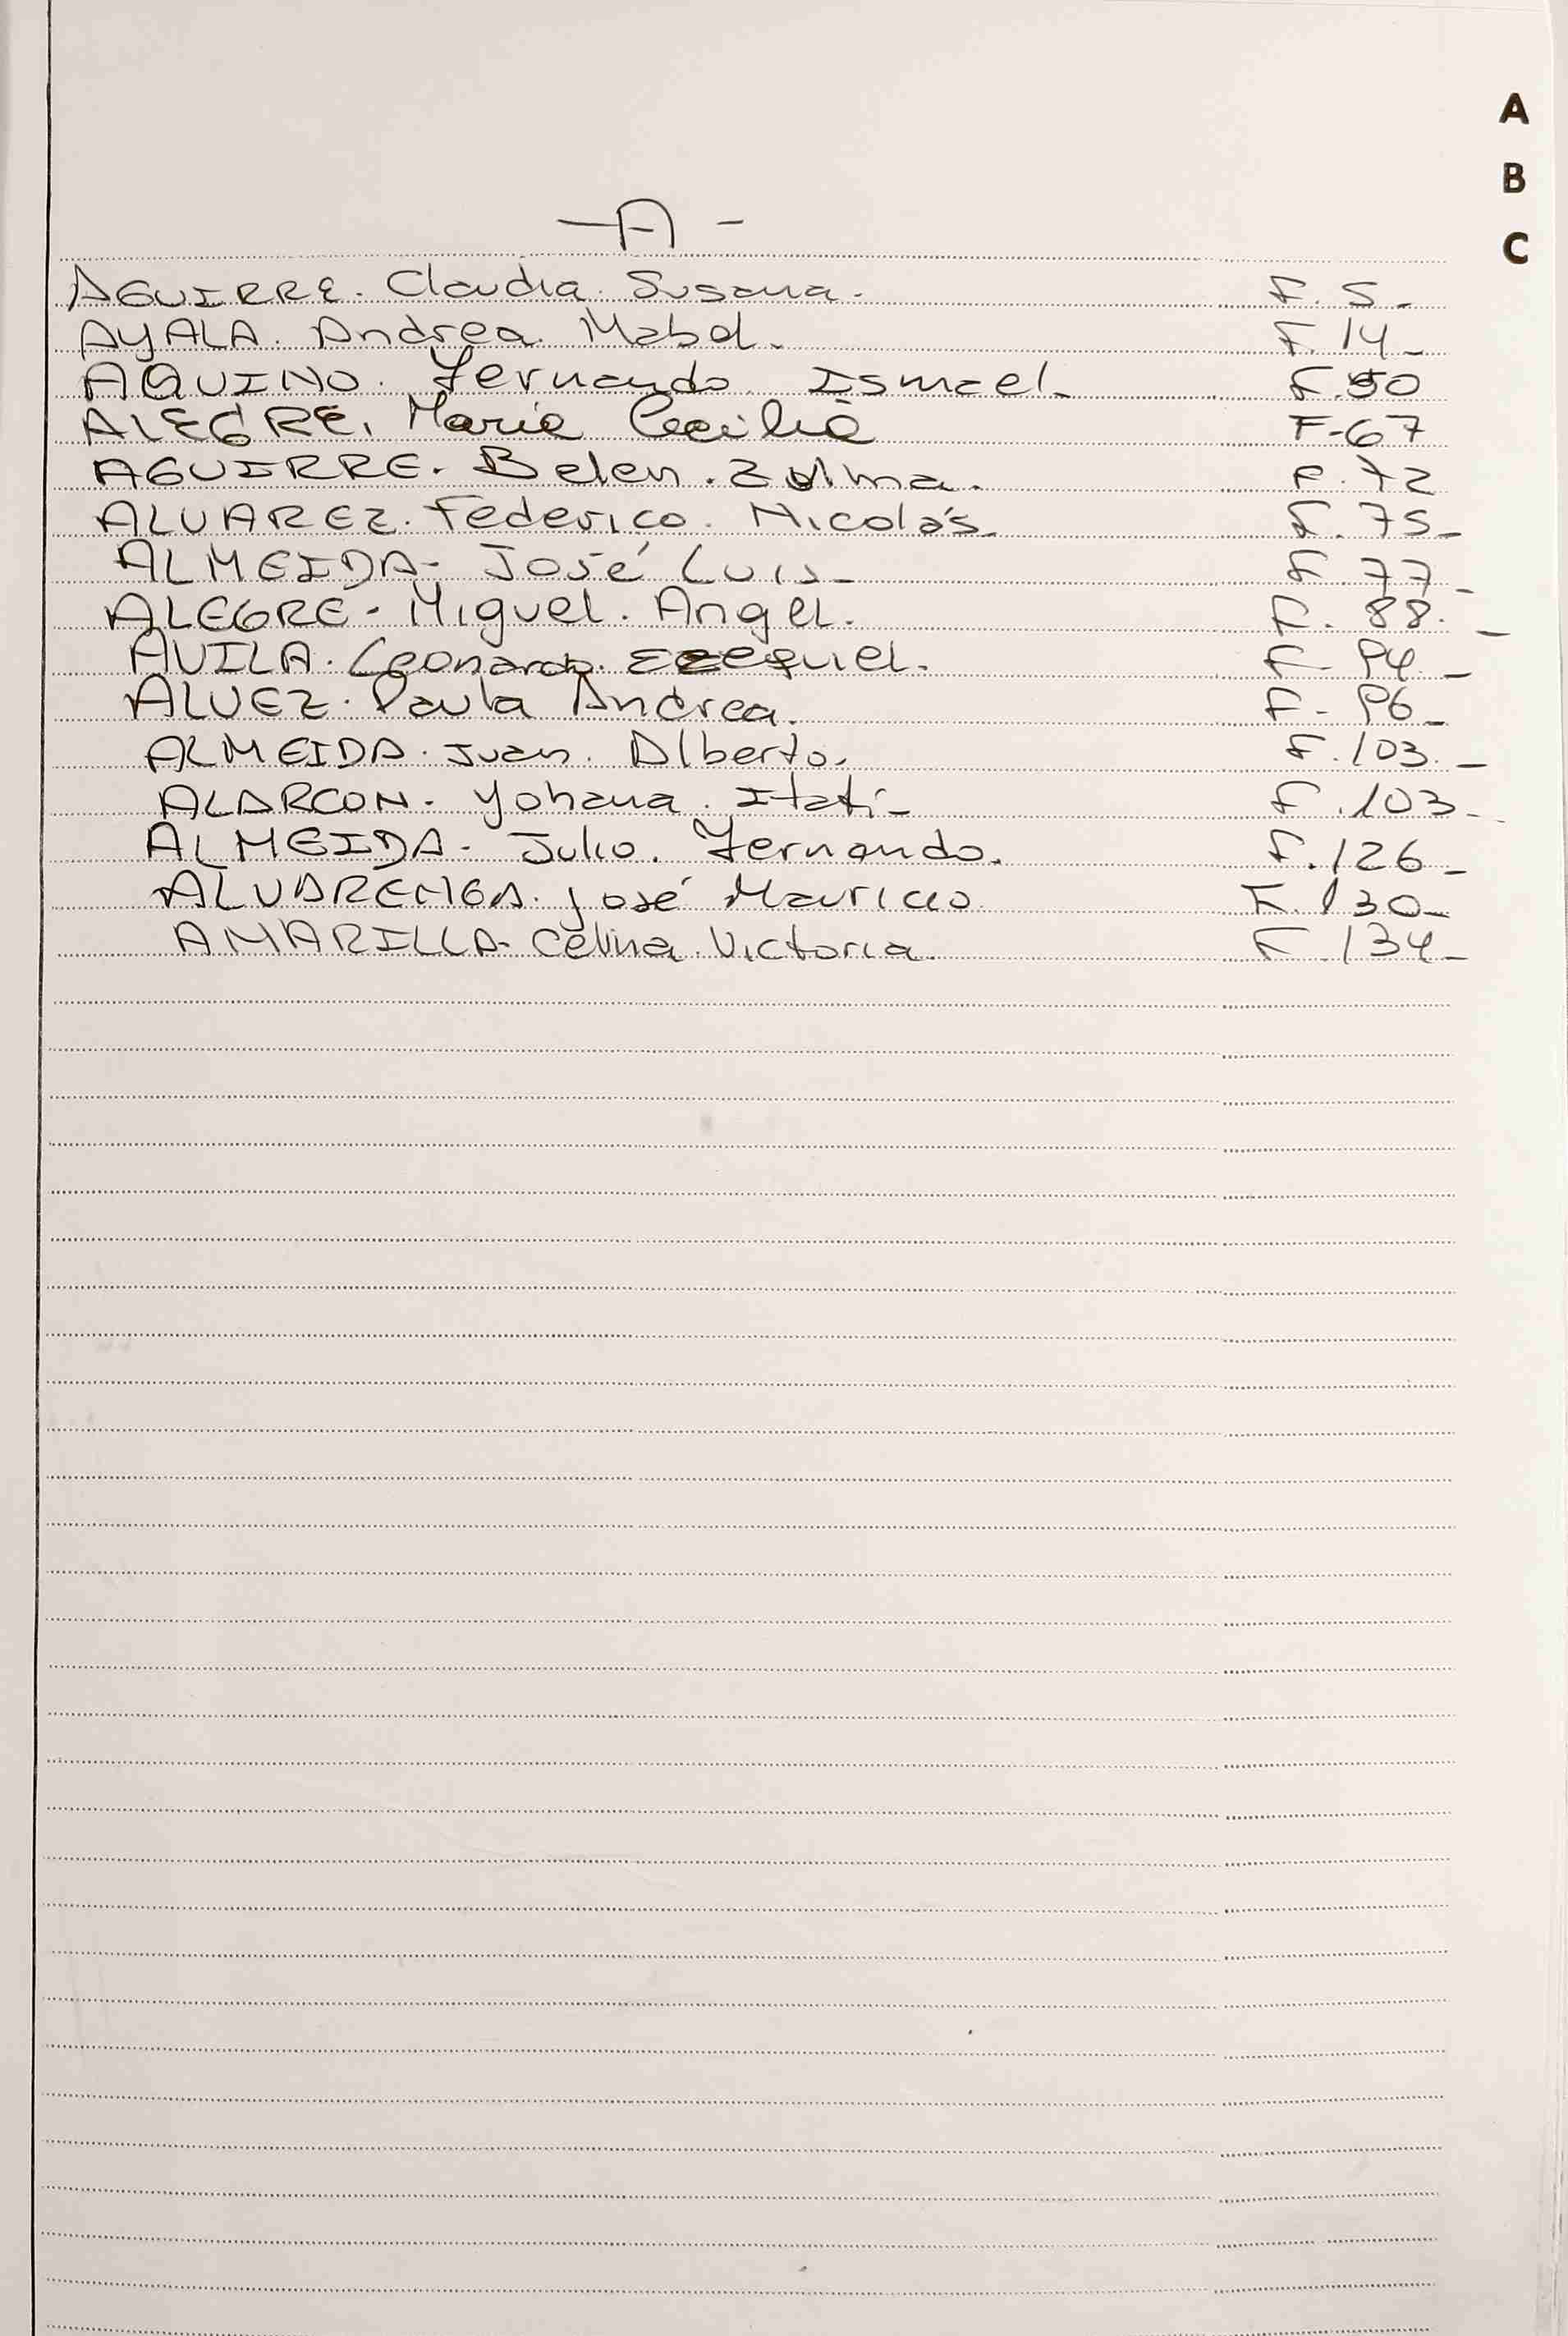 A
B
C
- A -
AGUIRRE. Claudia. Susana. F. 5-
AYALA. Andrea. Mabel. F. 14-
AQUINO. Fernando. Ismael. F. 50
ALEGRE. Maria Cecilia F-67
AGUIRRE. Belen. Zulma. F. 72
ALVAREZ. Federico. Nicolás. F. 75-
ALMEIDA- José Luis- F 77-
ALEGRE- Miguel. Angel. F. 88.-
AVILA. Leonardo. Ezequiel. F- 94-
ALVEZ. Paula Andrea. F- 96-
ALMEIDA. Juan. Alberto. F. 103.-
ALARCON. Yohana. Itatí- F. 103-
ALMEIDA- Julio. Fernando. F. 126-
ALVARENGA. José Mauricio F. 130-
AMARILLA- Celina. Victoria. F. 134-